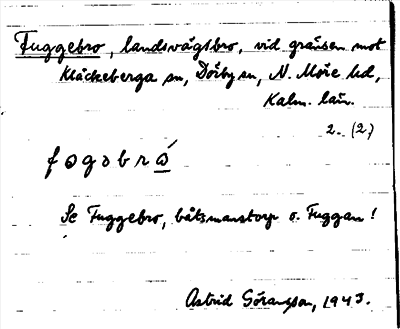 Fuggebro, landsvägsbro, vid gränsen mot
Kläckeberga sn, Dörby sn, N. Möre hd,
Kalm. län.
2. (2)
fogobrå
Se Fuggebro, båtsmanstorp o. Fuggan!
Astrid Göransson, 1943.